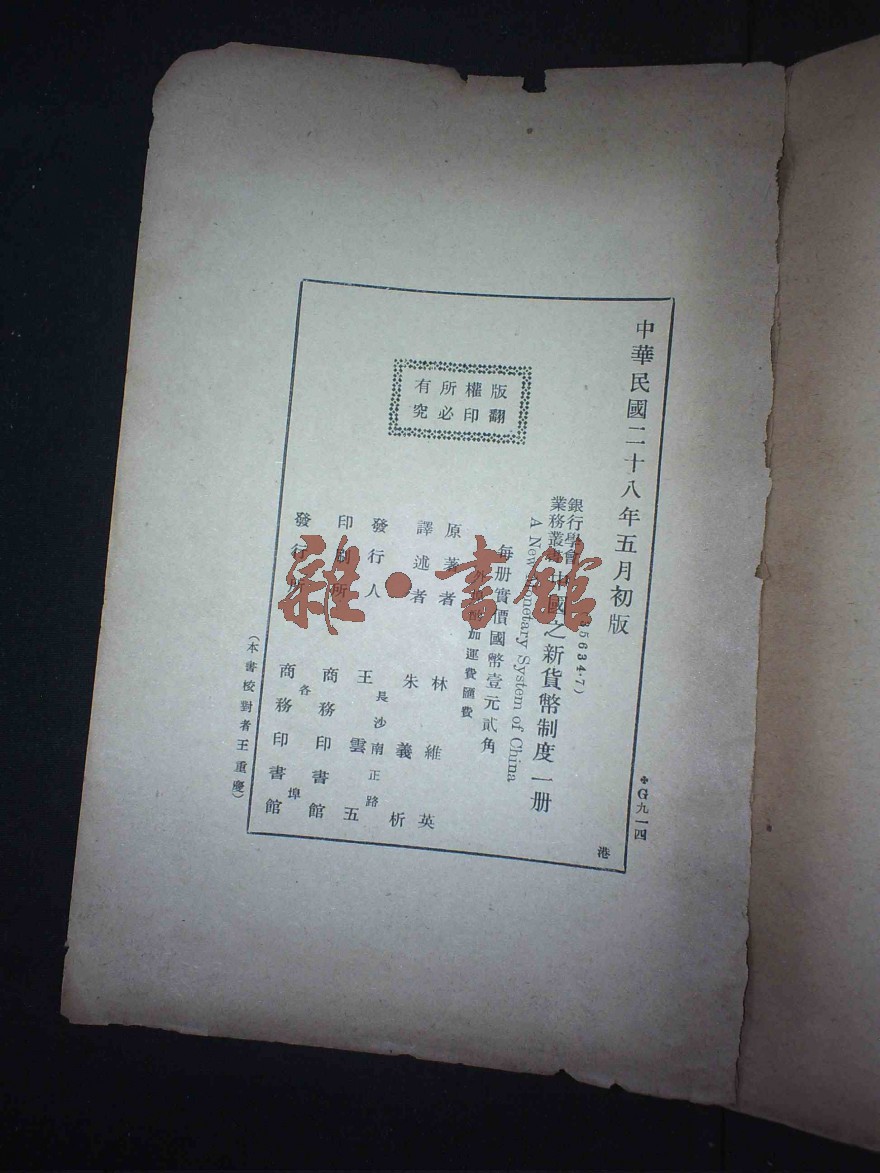 中華民國二十八年五月初版
✥G九一四
(35634·7)
銀行學會
業務叢書
中國之新貨幣制度一册
A New Monetary System of China
每册實價國幣壹元貳角
外埠酌加運費匯費
原著者 林維英
譯述者 朱義析
發行人 王雲五
長沙南正路
印刷所 商務印書館
發行所 商務印書館
各埠
版權所有
翻印必究
(本書校對者王重慶)
港
雜·書館